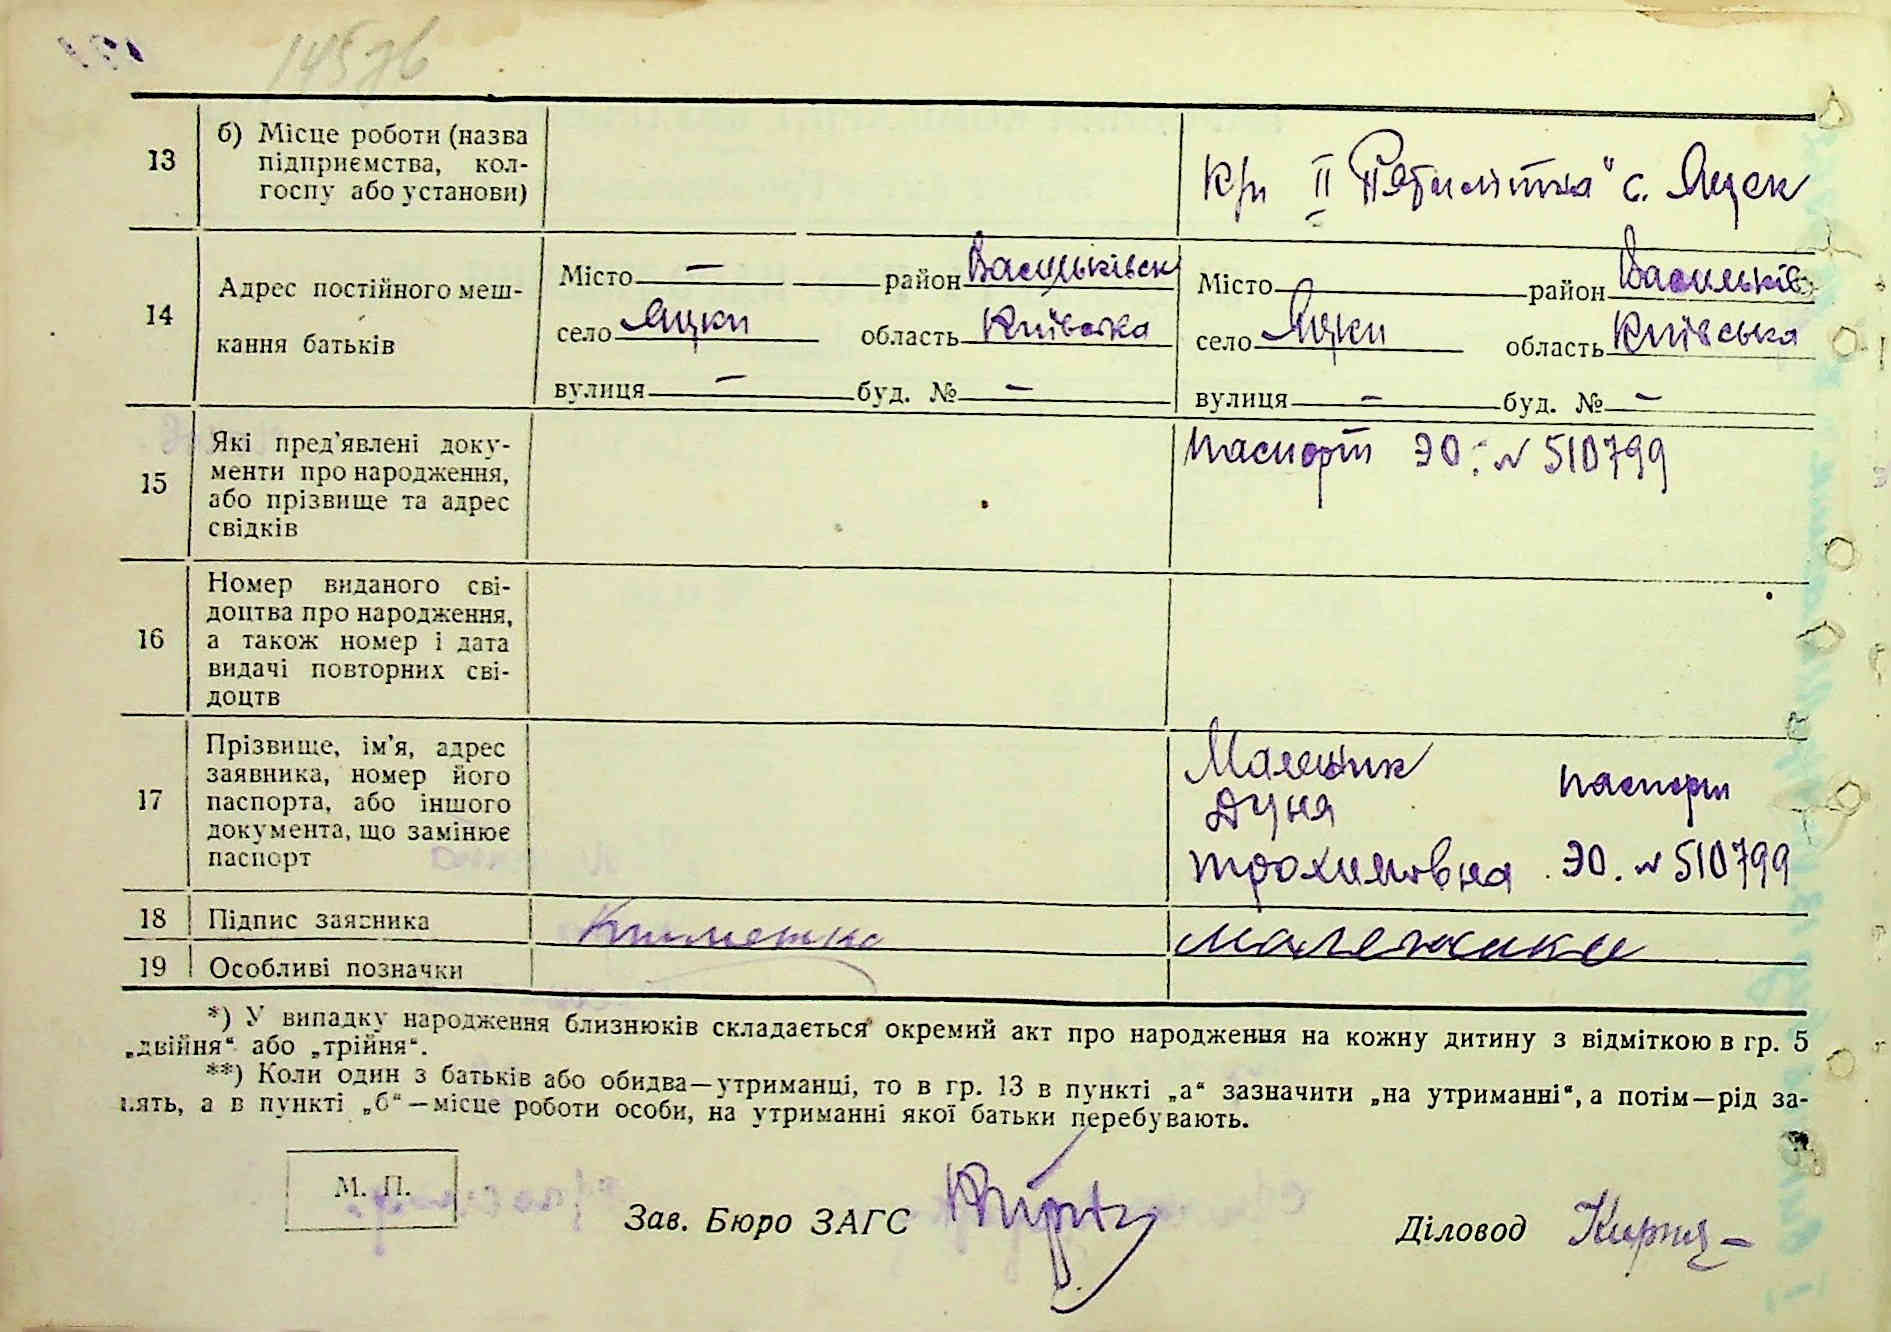 145 зв
13 б) Місце роботи (назва
підприємства, кол-
госпу або установи)
II П'ятилітка" с. Яцек
14 Адрес постійного меш-
кання батьків
Місто — район Васильківськ
село Яцки область Київська
вулиця — буд. № —
Місто район Васильків
село Яцки область Київська
вулиця — буд. № —
15 Які пред'явлені доку-
менти про народження,
або прізвище та адрес
свідків
паспорт ЭО. № 510799
16 Номер виданого сві-
доцтва про народження,
а також номер і дата
видачі повторних сві-
доцтв
17 Прізвище, ім'я, адрес
заявника, номер його
паспорта, або іншого
документа, що замінює
паспорт
паспорт
Дуня
Трохимовна ЭО. № 510799
18 Підпис заявника
19 Особливі позначки
*) У випадку народження близнюків складається окремий акт про народження на кожну дитину з відміткою в гр. 5
„двійня“ або „трійня“.
**) Коли один з батьків або обидва—утриманці, то в гр. 13 в пункті „а“ зазначити „на утриманні“, а потім—рід за-
нять, а в пункті „б“—місце роботи особи, на утриманні якої батьки перебувають.
М. П.
Зав. Бюро ЗАГС
Діловод